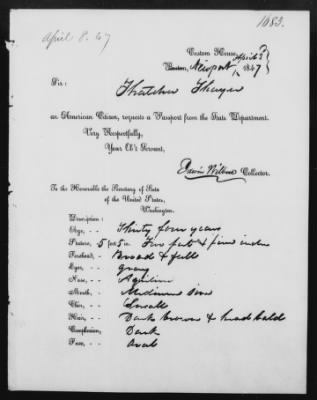 1683.
April 8. 47
Custom House,
Boston, Newport, April 6 1847
Sir:
Thatcher Thayer
an American Citizen, requests a Passport from the State Department.
Very Respectfully,
Your Ob't Servant,
Edwin Wilbur Collector.
To the Honorable the Secretary of State
of the United States,
Washington.
Description:
Age, - - Thirty four years
Stature, 5 feet 5 in. Five feet & five inches
Forehead, - Broad & full
Eyes, - - gray
Nose, - - Aquiline
Mouth, - Medium size
Chin, - - Small
Hair, - - Dark brown & head bald
Complexion, Dark
Face, - - Oval